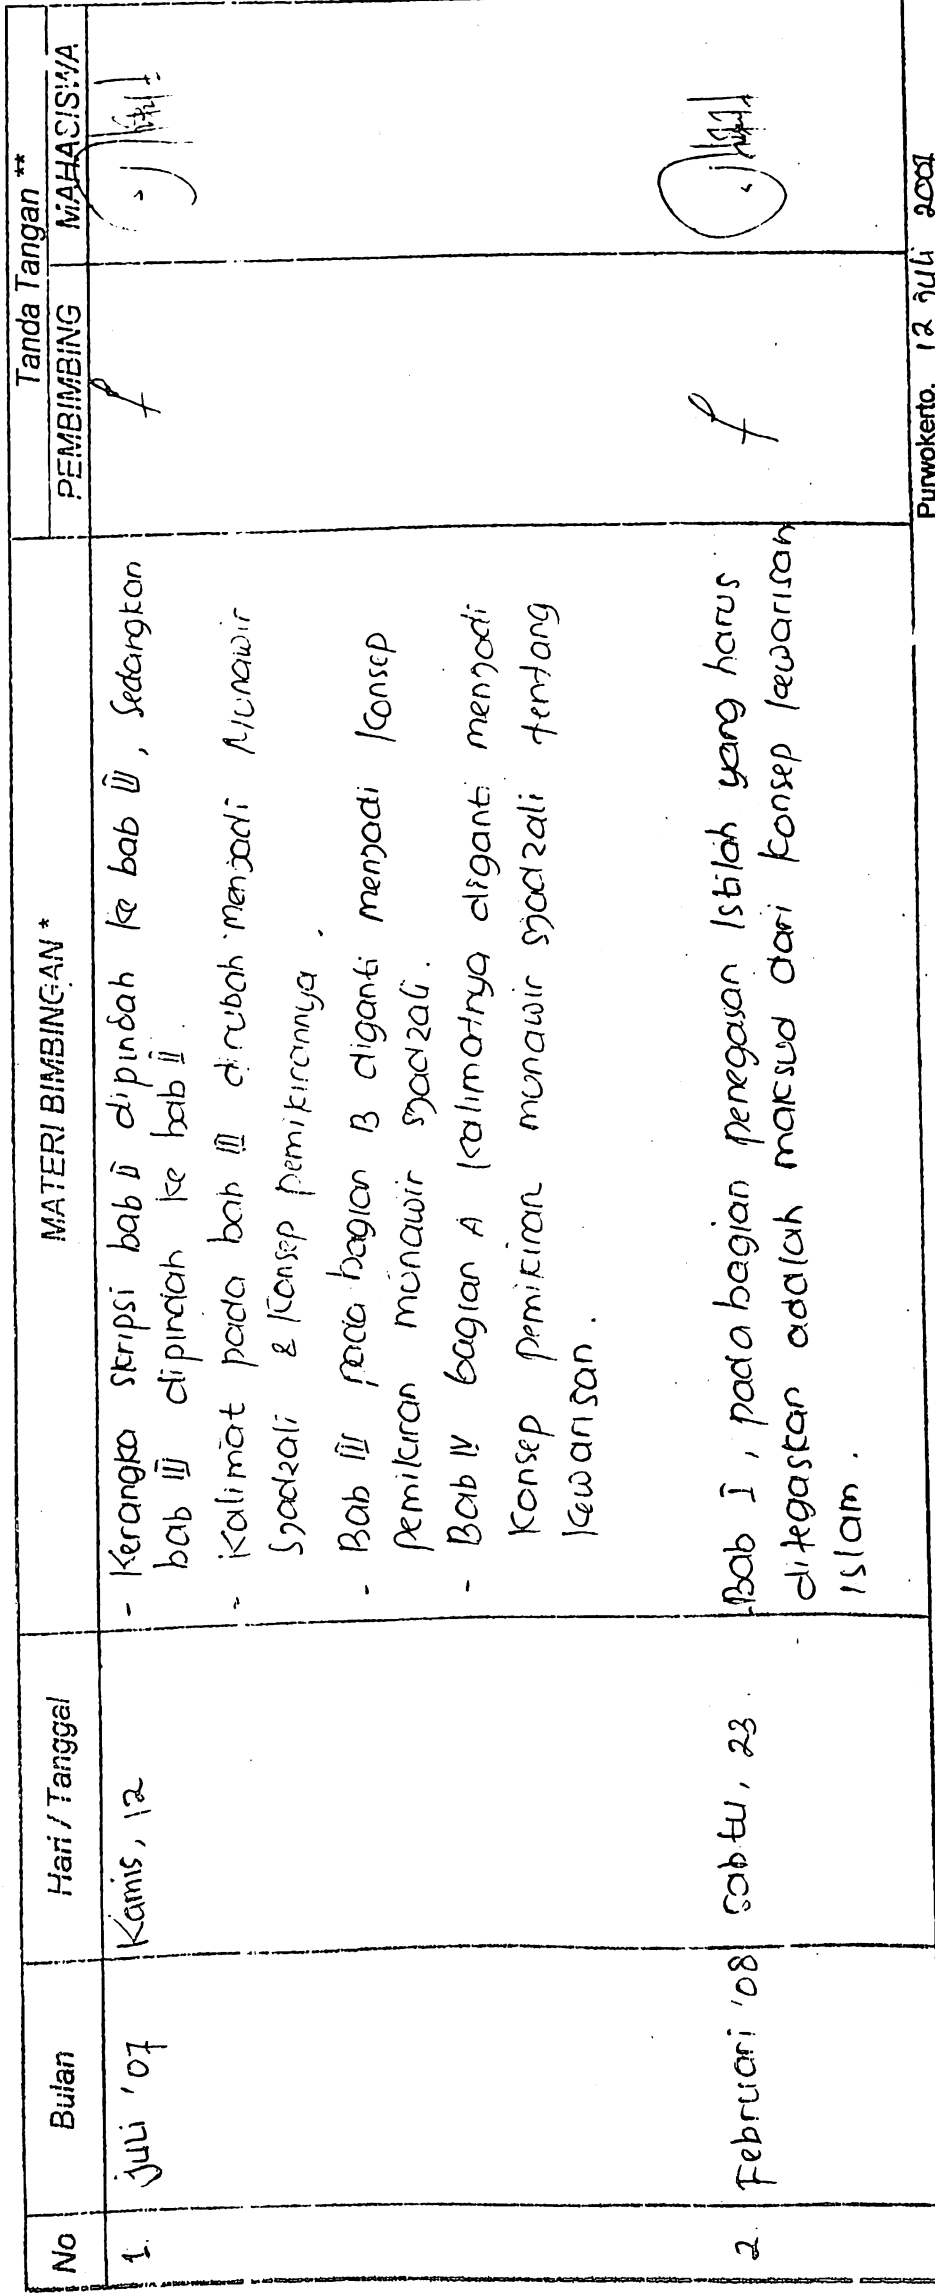 No Bulan Hari / Tanggal MATERI BIMBINGAN * Tanda Tangan **
PEMBIMBING MAHASISWA
1. Juli '07 Kamis, 12
- Kerangka skripsi bab II dipindah ke bab III, sedangkan
bab III dipindah ke bab II.
- Kalimat pada bab III dirubah menjadi Munawir
Sjadzali & Konsep pemikirannya.
- Bab III pada bagian B diganti menjadi Konsep
pemikiran munawir sjadzali.
- Bab IV bagian A kalimatnya diganti menjadi
Konsep pemikiran munawir sjadzali tentang
Kewarisan.
2. Februari '08 Sabtu, 23.
- Bab I, pada bagian penegasan Istilah yang harus
ditegaskan adalah maksud dari konsep kewarisan
Islam.
Purwokerto, 12 Juli 2007